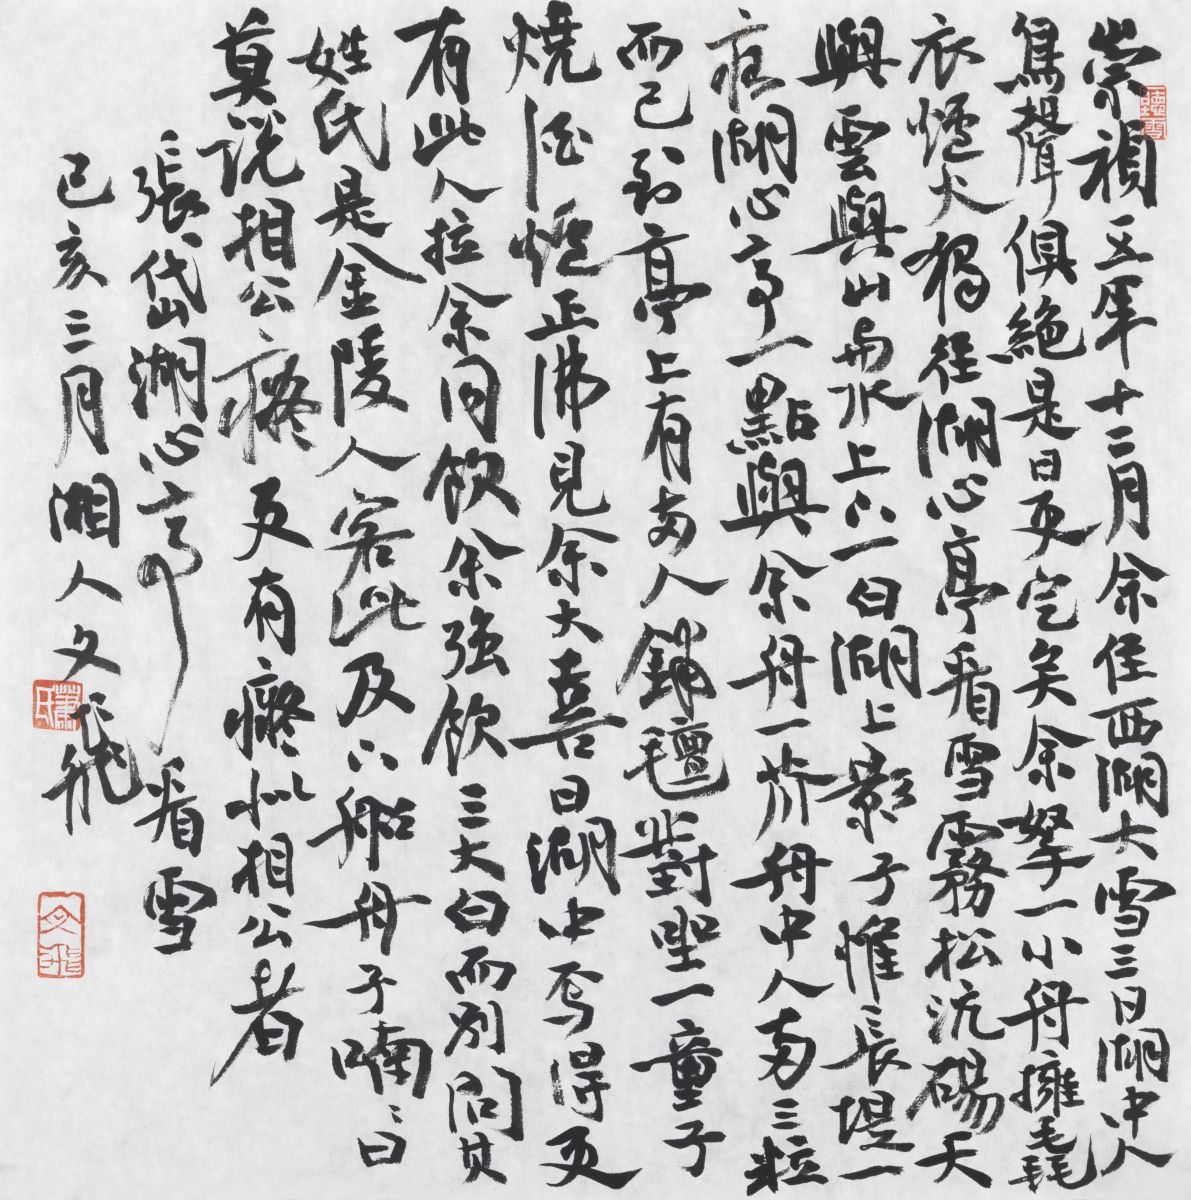 崇禎五年十二月余住西湖大雪三日湖中人
鳥聲俱絕是日更定矣余拏一小舟擁毳
衣爐火獨往湖心亭看雪霧松沆碭天
與雲與山與水上下一白湖上影子惟長堤一
痕湖心亭一點與余舟一芥舟中人兩三粒
而已到亭上有兩人鋪氈對坐一童子
燒酒爐正沸見余大喜曰湖中焉得更
有此人拉余同飲余強飲三大白而別問其
姓氏是金陵人客此及下船舟子喃喃曰
莫說相公癡更有癡似相公者
張岱湖心亭看雪
己亥三月湘人文飛
聽雪
蕭氏
文飛